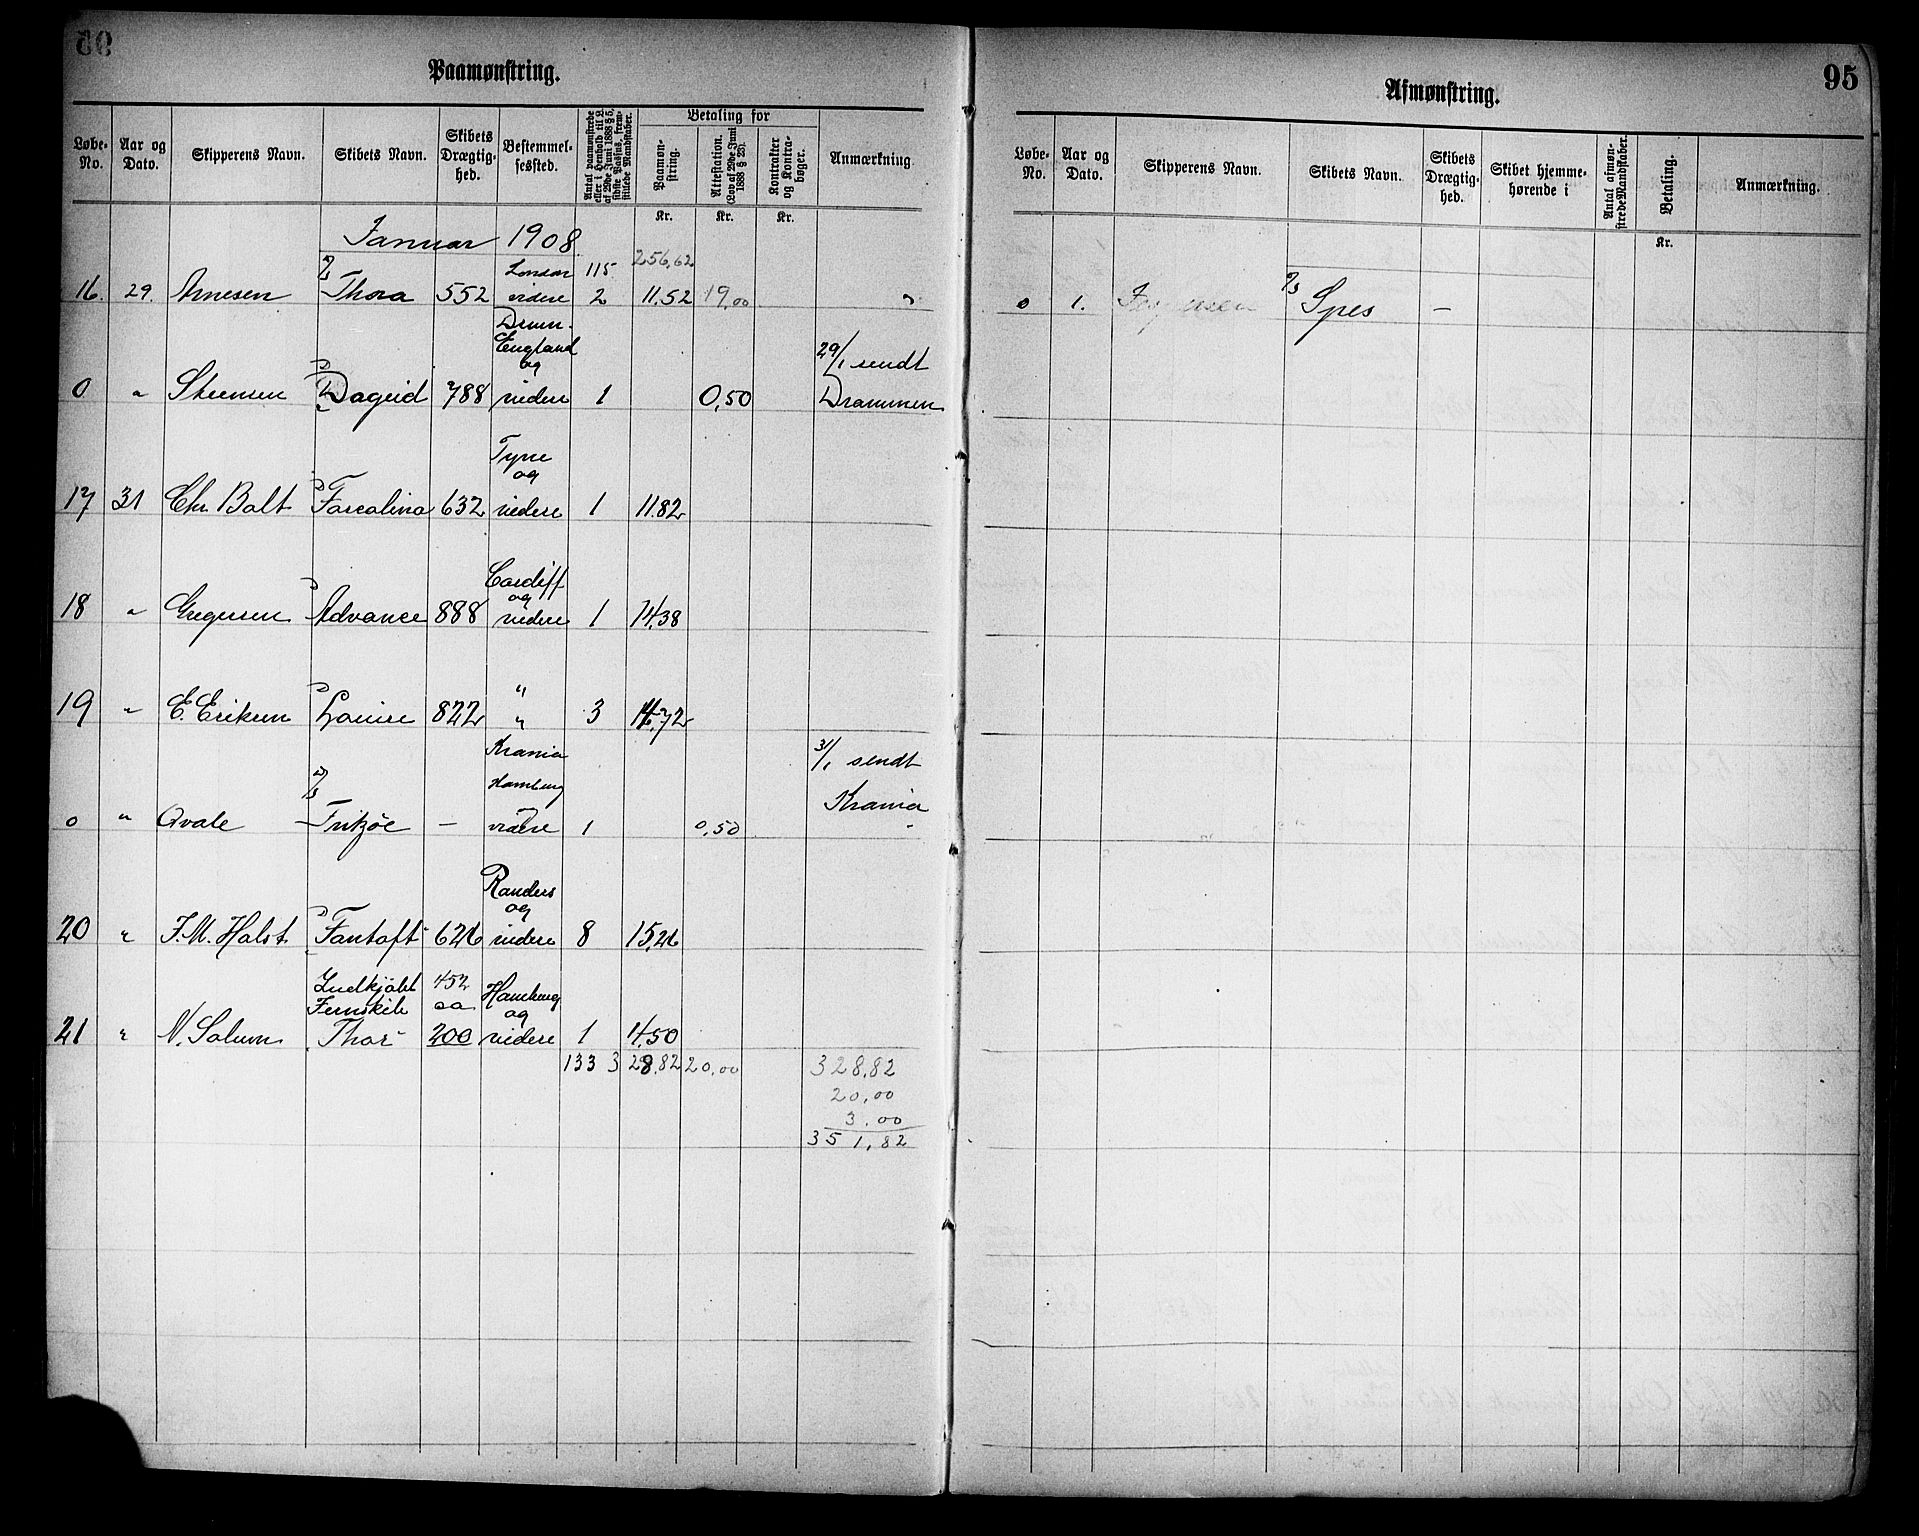 Paamønstring.
Løbe-No. Aar og Dato. Skipperens Navn. Skibets Navn. Skibets Drægtig-hed. Bestemmel-sessted. Antal paamønstrede eller i Henhold til L. af 29de Juni 1888 § 5, sidste Passus, frem-stillede Mandskaber. Betaling for Paamøn-string. Attestation. (Lov af 29de Juni 1888 § 23). Kontrakter og Kontra-bøger. Anmærkning.
Kr. Kr. Kr.
Januar 1908
London 115 256,62
16. 29. Arnesen Thora 552 videre 2 11.52 19,00 "
Dram.
England
og 29/1 sendt
0 " Steensen Dageid 788 videre 1 0,50 Drammen
Tyne
og
17 31 Chr Balt Farcalina 632 videre 1 11.82
Cardiff
og
18 " Gregersen Advance 888 videre 1 14,38
"
19 " E. Eriksen Louise 822 " 3 14,72
Krania 31/1 sendt
Hamburg Krania
0 " Qvale Frikjøe — videre 1 0,50 "
Randers
og
20 " J. M. Halst Fantoft 626 videre 8 15,26
Indkjøbt 452 Hamburg
Jernskib og
21 " N. Salum Thor 200 videre 1 4,50
133 328.82 20,00 328,82
20,00
3,00
351,82
Afmønstring.
95
Løbe-No. Aar og Dato. Skipperens Navn. Skibets Navn. Skibets Drægtig-hed. Skibet hjemme-hørende i Antal afmøn-strede Mandskaber. Betaling. Anmærkning.
Kr.
0 1. Spes —